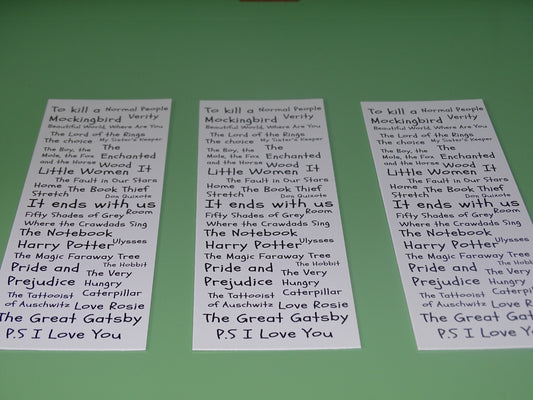 To kill a Normal People
Mockingbird Verity
Beautiful World, Where Are You
The Lord of the Rings
The choice My Sister's Keeper
The Boy, the
Mole, the Fox
and the Horse
The
Enchanted
Wood
Little Women It
The Fault in Our Stars
Home
Stretch
The Book Thief
Don Quixote
It ends with us
Fifty Shades of Grey Room
Where the Crawdads Sing
The Notebook
Harry Potter Ulysses
The Magic Faraway Tree
Pride and
Prejudice
The Hobbit
The Very
Hungry
Caterpillar
The Tattooist
of Auschwitz
Love Rosie
The Great Gatsby
P.S I Love You
To kill a Normal People
Mockingbird Verity
Beautiful World, Where Are You
The Lord of the Rings
The choice My Sister's Keeper
The Boy, the
Mole, the Fox
and the Horse
The
Enchanted
Wood
Little Women It
The Fault in Our Stars
Home
Stretch
The Book Thief
Don Quixote
It ends with us
Fifty Shades of Grey Room
Where the Crawdads Sing
The Notebook
Harry Potter Ulysses
The Magic Faraway Tree
Pride and
Prejudice
The Hobbit
The Very
Hungry
Caterpillar
The Tattooist
of Auschwitz
Love Rosie
The Great Gatsby
P.S I Love You
To kill a Normal People
Mockingbird Verity
Beautiful World, Where Are You
The Lord of the Rings
The choice My Sister's Keeper
The Boy, the
Mole, the Fox
and the Horse
The
Enchanted
Wood
Little Women It
The Fault in Our Stars
Home
Stretch
The Book Thief
Don Quixote
It ends with us
Fifty Shades of Grey Room
Where the Crawdads Sing
The Notebook
Harry Potter Ulysses
The Magic Faraway Tree
Pride and
Prejudice
The Hobbit
The Very
Hungry
The Tattooist
of Auschwitz
Love
The Great
P.S I Love You